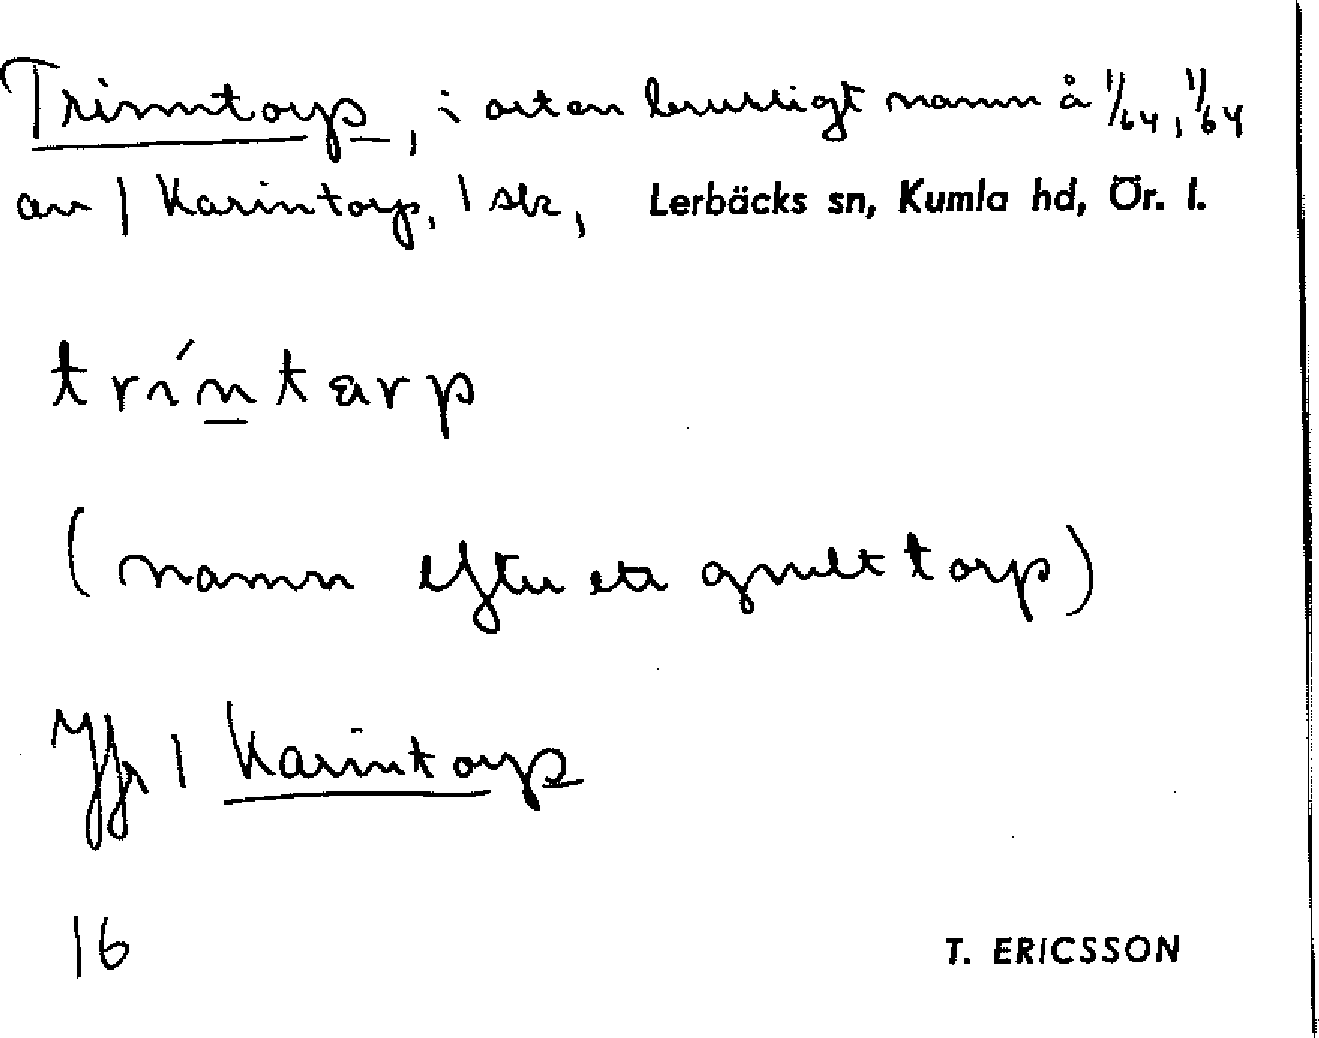 Trinntorp, i orten brukligt namn å 1/64, 1/64
av 1 Karintorp, 1 sk, Lerbäcks sn, Kumla hd, Ör. l.
trintarp
(namn efter ett gmlt torp)
Jfr 1 Karintorp
16
T. ERICSSON